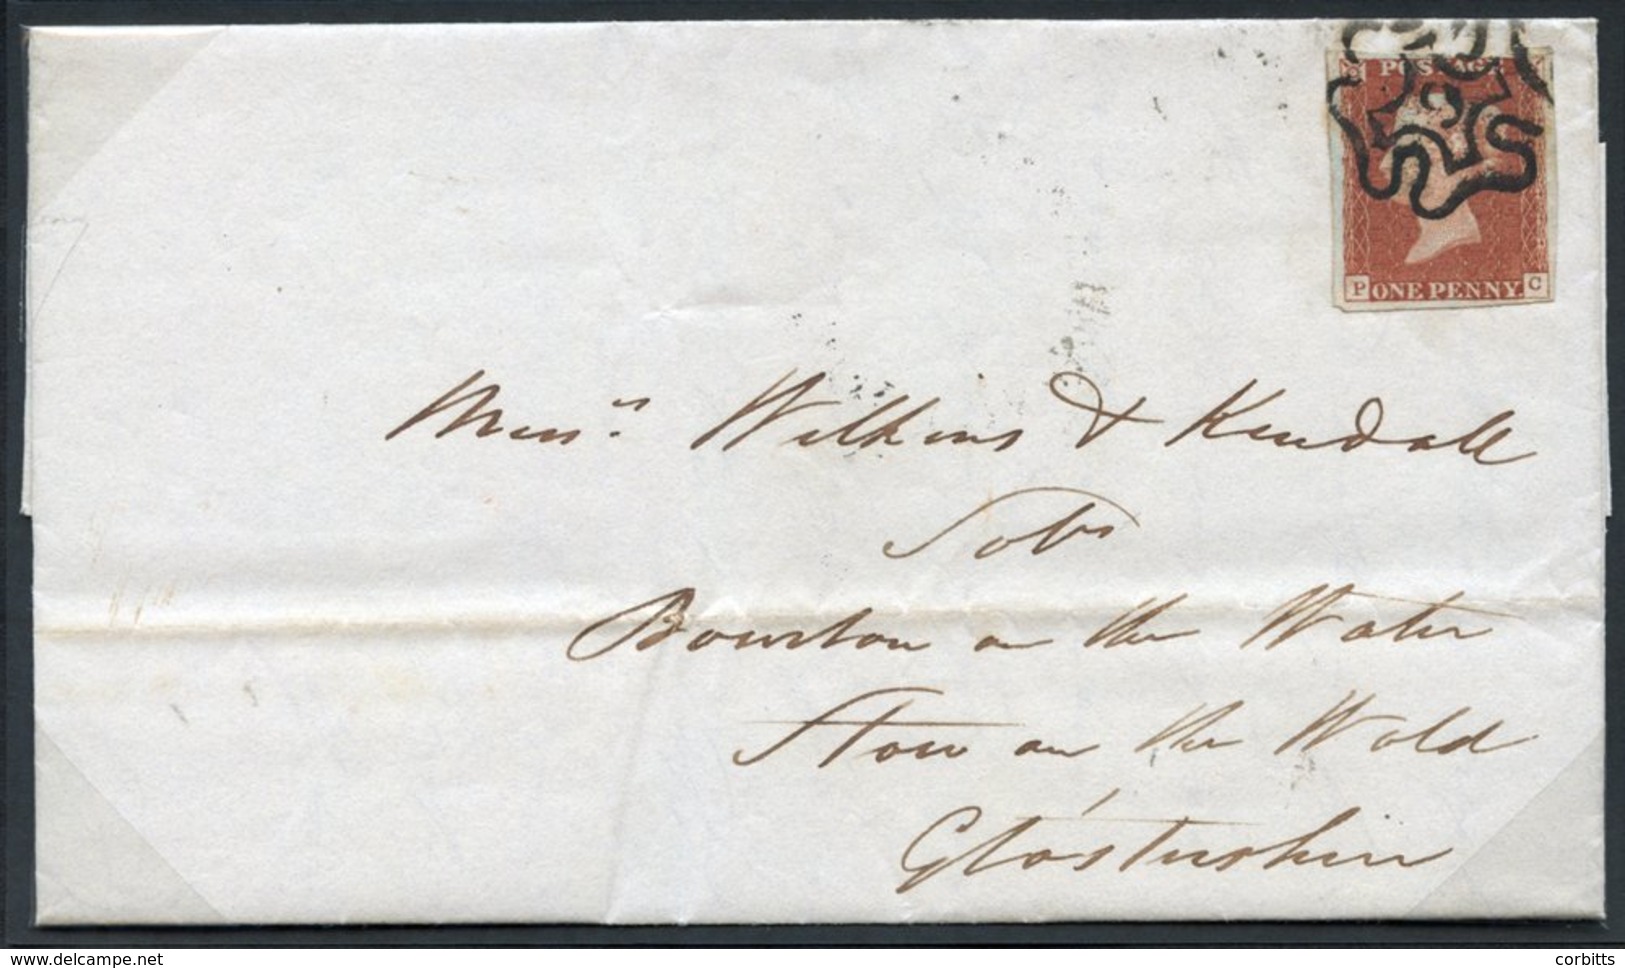 POSTAGE
P ONE PENNY. C
Mess.rs Wilkins & Kendall
Solrs
Bourton on the Water
Stow on the Wold
Glo'stershire
delcampe.net
corbitts